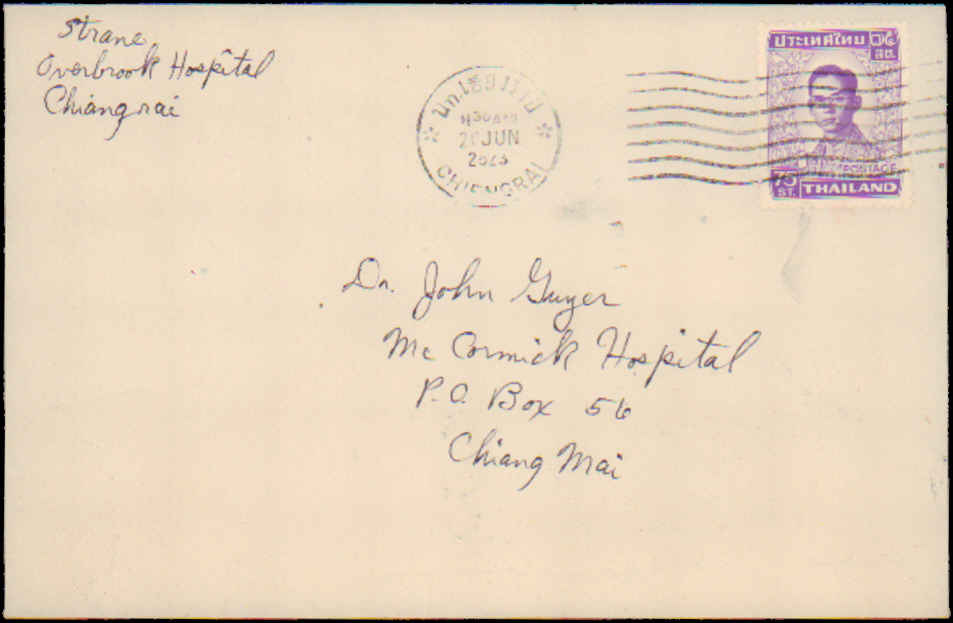 Strane
Overbrook Hospital
Chiangrai
20 JUN
CHIENGRAI
ประเทศไทย ๗๕
สต.
POSTAGE
75
ST. THAILAND
Dr. John Guyer
Mc Cormick Hospital
P.O. Box 56
Chiang Mai